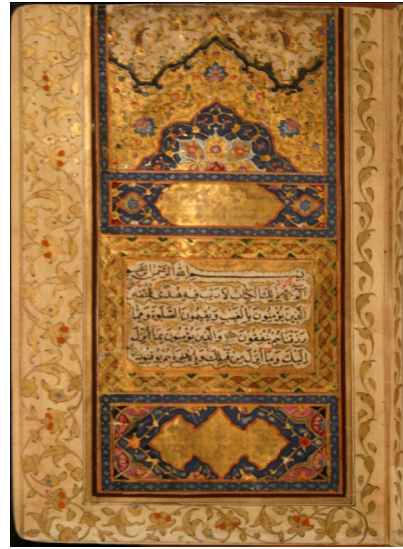 بسم الله الرحمن الرحیم
الم ذلك الكتاب لا ریب فیه هدى للمتقین
الذین یؤمنون بالغیب ویقیمون الصلوة ومما
رزقناهم ینفقون والذین یؤمنون بما أنزل
إلیك وما أنزل من قبلك وبالآخرة هم یوقنون